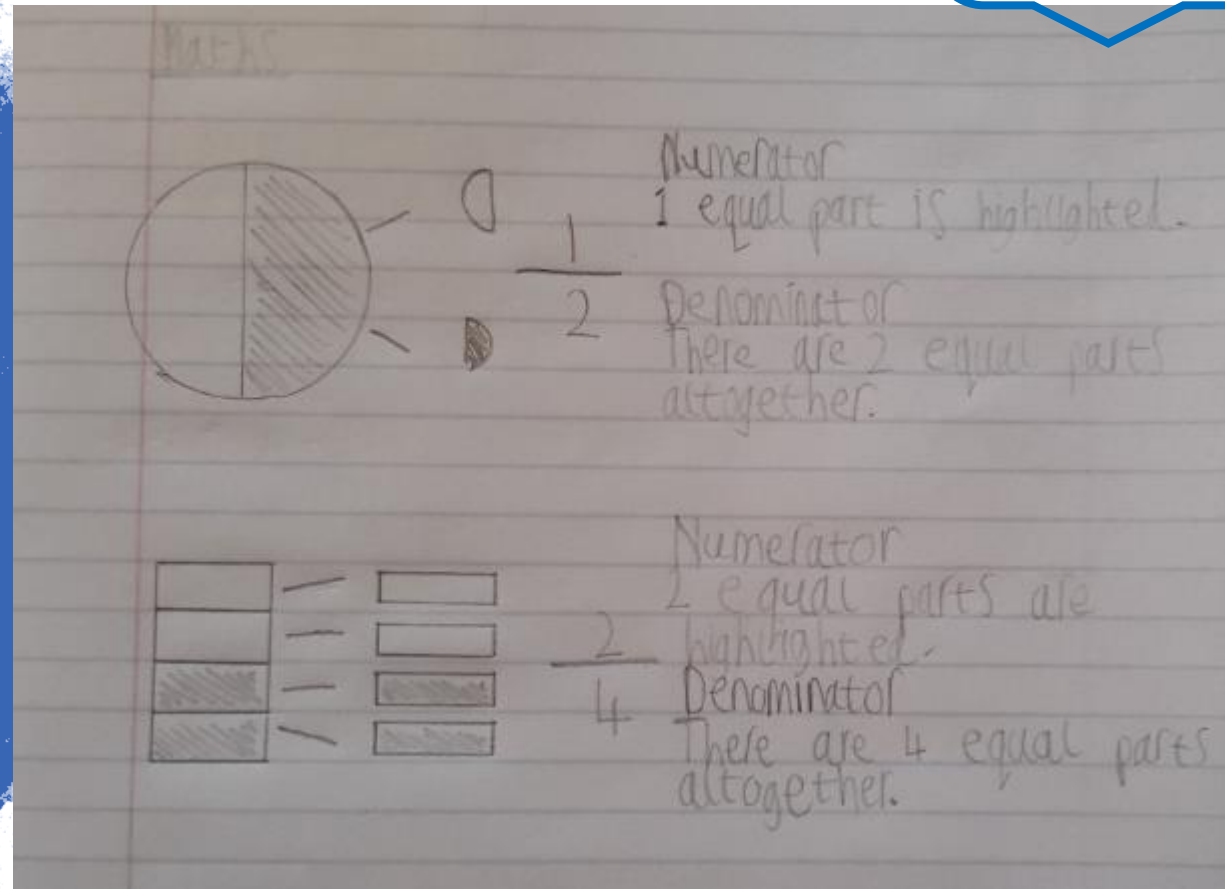 Maths
Numerator
1 equal part is highlighted.
1
2
Denominator
There are 2 equal parts
altogether.
Numerator
2 equal parts are
highlighted.
2
4
Denominator
There are 4 equal parts
altogether.